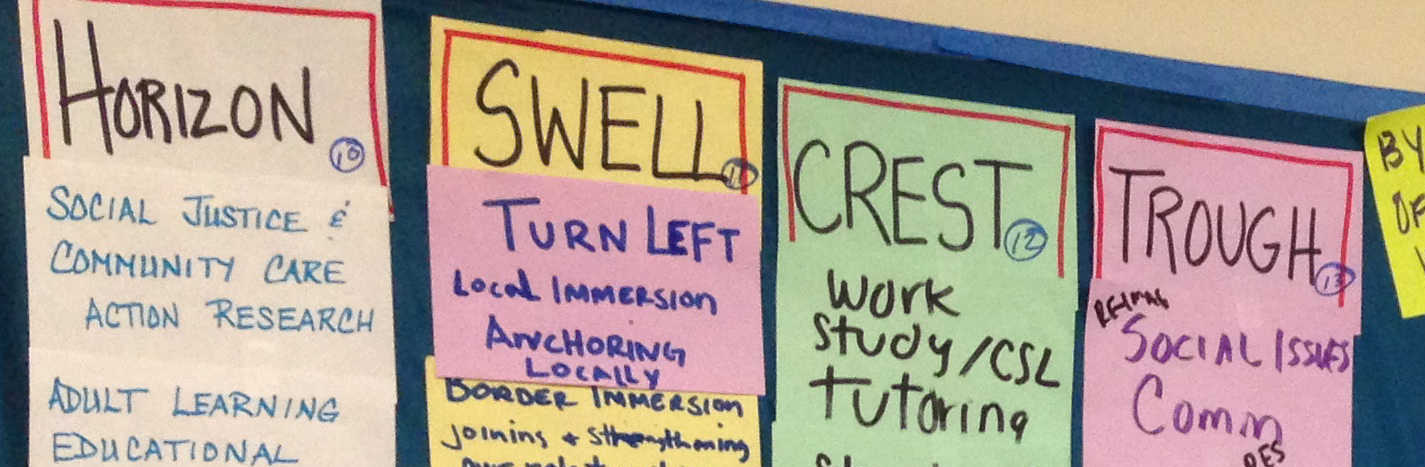 HORIZON
10
SOCIAL JUSTICE &
COMMUNITY CARE
ACTION RESEARCH
ADULT LEARNING
EDUCATIONAL
SWELL
11
TURN LEFT
LOCAL IMMERSION
ANCHORING
LOCALLY
BORDER IMMERSION
joining + strengthening
CREST
12
Work
Study/CSL
tutoring
TROUGH
13
SOCIAL ISSUES
Comm
RES
BY
OF